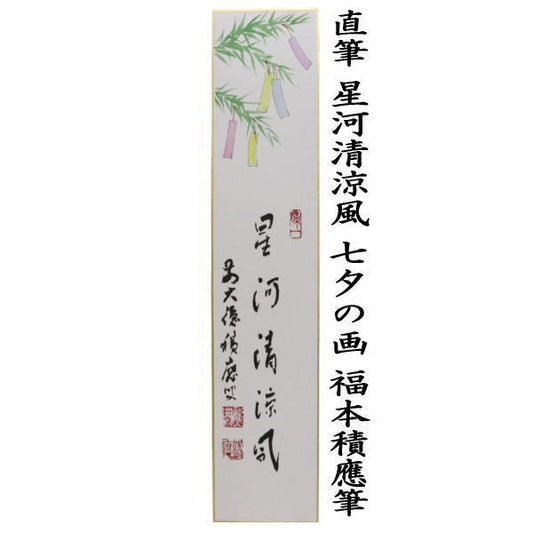 直筆 星河清涼風 七夕の画 福本積應筆
星河清涼風
前大徳積應叟